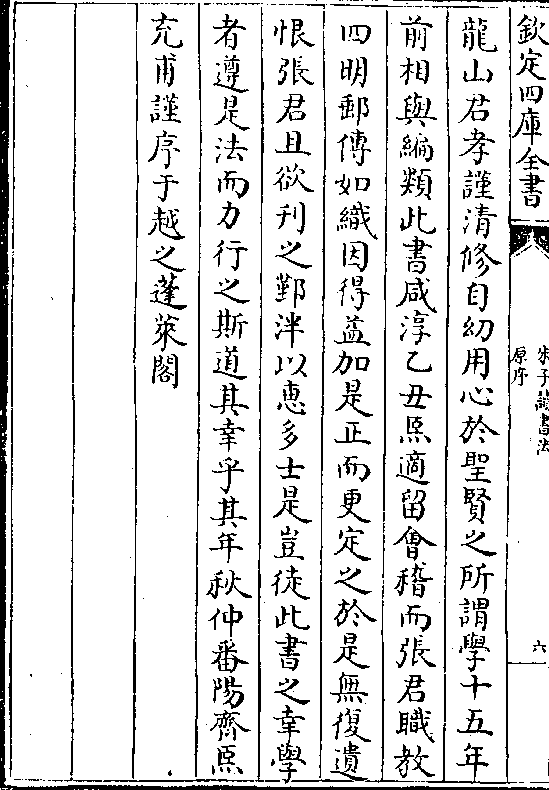 欽定四庫全書
朱子讀書法
原序
六
龍山君孝謹清修自幼用心於聖賢之所謂學十五年
前相與編類此書咸淳乙丑熙適留會稽而張君職教
四明郵傳如織因得益加是正而更定之於是無復遺
恨張君且欲刊之鄞泮以惠多士是豈徒此書之幸學
者遵是法而力行之斯道其幸乎其年秋仲番陽齊熙
充甫謹序于越之蓬萊閣